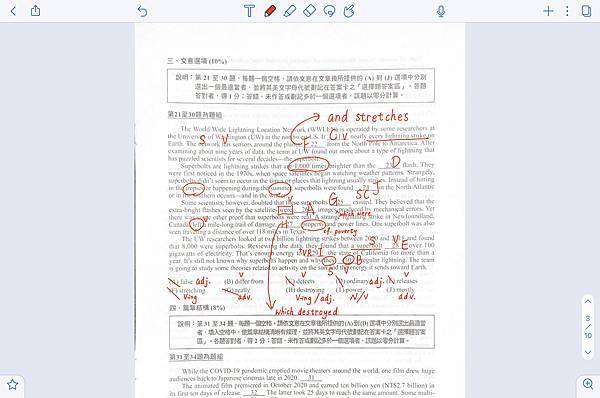 三、文意選填 (10%)
說明：第 21 至 30 題，每題一個空格，請依文意在文章後所提供的 (A) 到 (J) 選項中分別
選出一個最適當者，並將其英文字母代號劃記在答案卡之「選擇題答案區」。各題
答對者，得 1 分；答錯、未作答或劃記多於一個選項者，該題以零分計算。
第21至30題為題組
and stretches
S V F Civ
The World Wide Lightning Location Network (WWLLN) is operated by some researchers at
the University of Washington (UW) in the northwest US. It nearly every lightning strike on
Earth. The network has sensors around the planet 22 from the North Pole to Antarctica. After
examining about nine years of data, the team at UW found out more about a type of lightning that
has puzzled scientists for several decades—the superbolt.
D
Superbolts are lightning strikes that are 1,000 times brighter than the 23 flash. They
were first noticed in the 1970s, when space satellites began watching weather patterns. Strangely,
superbolts didn't seem to occur in the times or places that lightning usually strikes. Instead of hitting
in the tropics or happening during the summer, superbolts were found 24 in the North Atlantic
or in the southern oceans—and in the winter.
J
A G SC
Some scientists, however, doubted that these superbolts 25 existed. They believed that the
extra-bright flashes seen by the satellites were 26 images produced by mechanical errors. Yet
there was other proof that superbolts were real. A strange lightning strike in Newfoundland,
Canada left a mile-long trail of damage, 27 property and power lines. One superbolt was also
seen traveling a distance of over 118 miles in Texas.
V H which were
of poverty
The UW researchers looked at two billion lightning strikes between 2010 and 2018 and found
that 8,000 were superbolts. Reviewing the data, they found that a superbolt over 100
gigawatts of electricity. That's enough energy the state of California for more than a
year. It's still not known why superbolts happen and why they regular lightning. The team
is going to study some theories related to activity on the surface energy it sends toward Earth.
S V E
I
B
S V
(A) false adj. (B) differ from (C) detects (D) ordinary adj. (E) releases
V V V
(F) stretching (G) really (H) destroying (I) power (J) mostly
Ving adv. Ving/adj. N/V adv.
which destroyed
四、篇章結構 (8%)
說明：第 31 至 34 題，每題一個空格，請依文意在文章後所提供的(A)到(D)選項中分別選出最適當
者，填入空格中，使篇章結構清晰有條理，並將其英文字母代號劃記在答案卡之「選擇題答案
區」。各題答對者，得 2 分；答錯、未作答或劃記多於一個選項者，該題以零分計算。
第31至34題為題組
While the COVID-19 pandemic emptied movie theaters around the world, one film drew huge
audiences back to Japanese cinemas late in 2020. 31
The animated film premiered in October 2020 and earned ten billion yen (NT$2.7 billion) in
its first ten days of release. 32 The latter took 25 days to reach the same amount. Some multi-
3
/
10